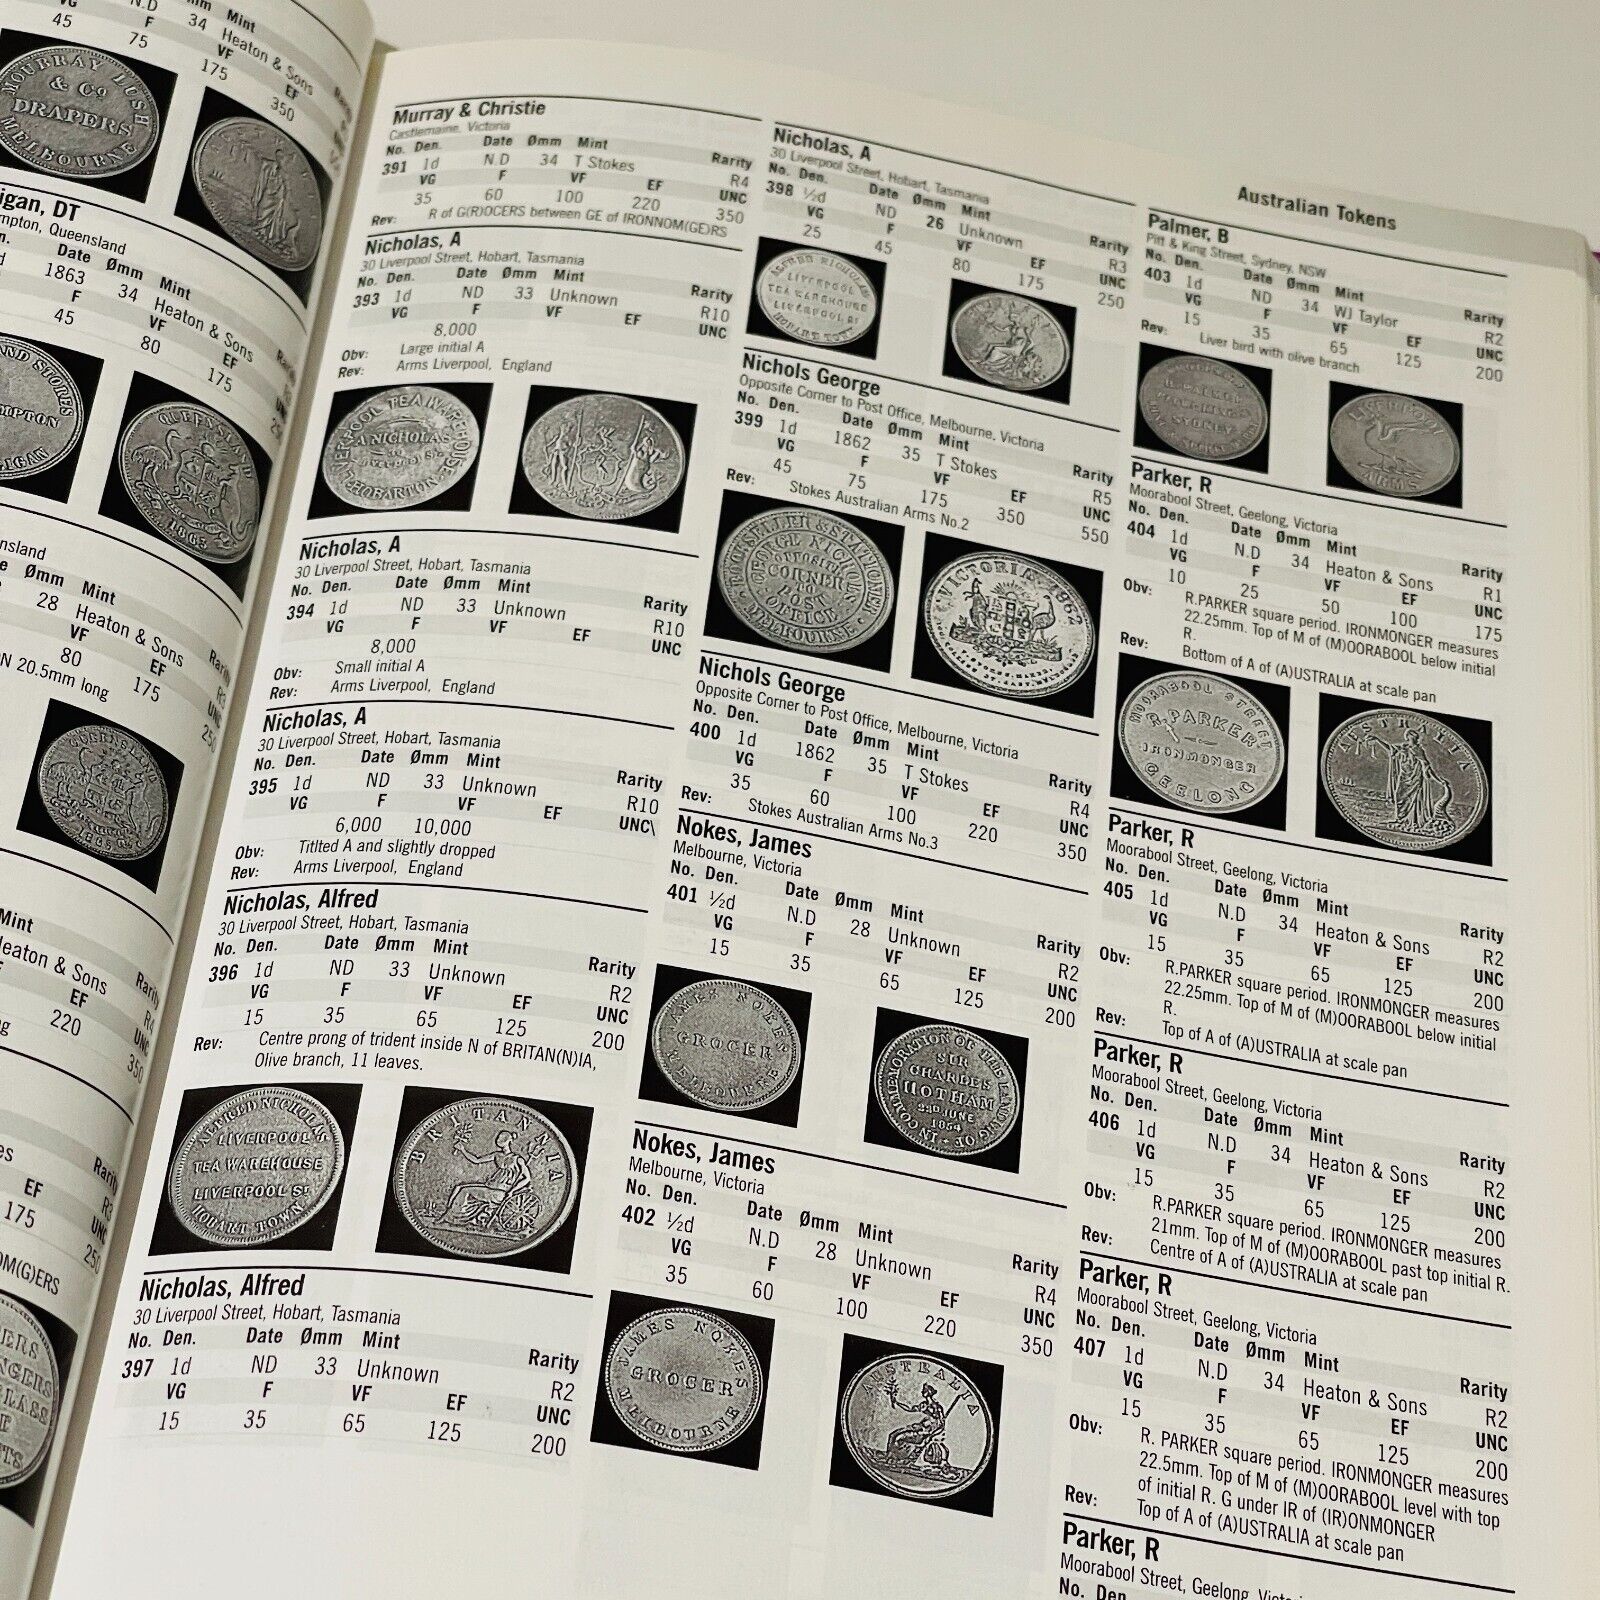 VG
N.D
mm
Mint
45
F
34
Heaton & Sons
75
VF
175
EF
350
MOUBRAY LUSH
& Co
DRAPERS
MELBOURNE
igan, DT
mpton, Queensland
Date Ømm Mint
1863 34 Heaton & Sons
F
VF
45
80
EF
175
QUEENSLAND
1863
nsland
Ømm Mint
28 Heaton & Sons
VF
EF
80
175
ON 20.5mm long
250
Mint
Heaton & Sons
EF
220
Rarity
R4
UNC
350
EF
175
Rarity
R3
UNC
250
NOM(G)ERS
Murray & Christie
Castlemaine, Victoria
No. Den. Date Ømm Mint Rarity
391 1d N.D 34 T Stokes R4
VG F VF EF UNC
35 60 100 220 350
Rev: R of G(R)OCERS between GE of IRONNOM(GE)RS
Nicholas, A
30 Liverpool Street, Hobart, Tasmania
No. Den. Date Ømm Mint Rarity
393 1d ND 33 Unknown R10
VG F VF EF UNC
8,000
Obv: Large initial A
Rev: Arms Liverpool, England
LIVERPOOL TEA WAREHOUSE
A NICHOLAS
LIVERPOOL St.
HOBARTON
Nicholas, A
30 Liverpool Street, Hobart, Tasmania
No. Den. Date Ømm Mint Rarity
394 1d ND 33 Unknown R10
VG F VF EF UNC
8,000
Obv: Small initial A
Rev: Arms Liverpool, England
Nicholas, A
30 Liverpool Street, Hobart, Tasmania
No. Den. Date Ømm Mint Rarity
395 1d ND 33 Unknown R10
VG F VF EF UNC\
6,000 10,000
Obv: Titlted A and slightly dropped
Rev: Arms Liverpool, England
Nicholas, Alfred
30 Liverpool Street, Hobart, Tasmania
No. Den. Date Ømm Mint Rarity
396 1d ND 33 Unknown R2
VG F VF EF UNC
15 35 65 125 200
Rev: Centre prong of trident inside N of BRITAN(N)IA,
Olive branch, 11 leaves.
ALFRED NICHOLAS
LIVERPOOL
TEA WAREHOUSE
LIVERPOOL St
HOBART TOWN
BRITANNIA
Nicholas, Alfred
30 Liverpool Street, Hobart, Tasmania
No. Den. Date Ømm Mint Rarity
397 1d ND 33 Unknown R2
VG F VF EF UNC
15 35 65 125 200
Nicholas, A
30 Liverpool Street, Hobart, Tasmania
No. Den. Date Ømm Mint Rarity
398 ½d ND 26 Unknown R3
VG F VF EF UNC
25 45 80 175 250
ALFRED NICHOLAS
LIVERPOOL
TEA WAREHOUSE
LIVERPOOL St
HOBART TOWN
Nichols George
Opposite Corner to Post Office, Melbourne, Victoria
No. Den. Date Ømm Mint Rarity
399 1d 1862 35 T Stokes R5
VG F VF EF UNC
45 75 175 350 550
Rev: Stokes Australian Arms No.2
BOOKSELLER & STATIONER
GEORGE NICHOLS
OPPOSITE
CORNER
TO
POST
OFFICE
MELBOURNE
VICTORIA 1862
Nichols George
Opposite Corner to Post Office, Melbourne, Victoria
No. Den. Date Ømm Mint Rarity
400 1d 1862 35 T Stokes R4
VG F VF EF UNC
35 60 100 220 350
Rev: Stokes Australian Arms No.3
Nokes, James
Melbourne, Victoria
No. Den. Date Ømm Mint Rarity
401 ½d N.D 28 Unknown R2
VG F VF EF UNC
15 35 65 125 200
JAMES NOKES
GROCER
MELBOURNE
IN COMMEMORATION OF THE LANDING OF
SIR
CHARLES
HOTHAM
22D JUNE
1854
Nokes, James
Melbourne, Victoria
No. Den. Date Ømm Mint Rarity
402 ½d N.D 28 Unknown R4
VG F VF EF UNC
35 60 100 220 350
JAMES NOKES
GROCER
MELBOURNE
AUSTRALIA
Australian Tokens
Palmer, B
Pitt & King Street, Sydney, NSW
No. Den. Date Ømm Mint Rarity
403 1d ND 34 WJ Taylor R2
VG F VF EF UNC
15 35 65 125 200
Rev: Liver bird with olive branch
SYDNEY
LIVERPOOL
ARMS
Parker, R
Moorabool Street, Geelong, Victoria
No. Den. Date Ømm Mint Rarity
404 1d N.D 34 Heaton & Sons R1
VG F VF EF UNC
10 25 50 100 175
Obv: R.PARKER square period. IRONMONGER measures
22.25mm. Top of M of (M)OORABOOL below initial
R.
Rev: Bottom of A of (A)USTRALIA at scale pan
MOORABOOL STREET
R. PARKER
IRONMONGER
GEELONG
AUSTRALIA
Parker, R
Moorabool Street, Geelong, Victoria
No. Den. Date Ømm Mint Rarity
405 1d N.D 34 Heaton & Sons R2
VG F VF EF UNC
15 35 65 125 200
Obv: R.PARKER square period. IRONMONGER measures
22.25mm. Top of M of (M)OORABOOL below initial
R.
Rev: Top of A of (A)USTRALIA at scale pan
Parker, R
Moorabool Street, Geelong, Victoria
No. Den. Date Ømm Mint Rarity
406 1d N.D 34 Heaton & Sons R2
VG F VF EF UNC
15 35 65 125 200
Obv: R.PARKER square period. IRONMONGER measures
21mm. Top of M of (M)OORABOOL past top initial R.
Rev: Centre of A of (A)USTRALIA at scale pan
Parker, R
Moorabool Street, Geelong, Victoria
No. Den. Date Ømm Mint Rarity
407 1d N.D 34 Heaton & Sons R2
VG F VF EF UNC
15 35 65 125 200
Obv: R. PARKER square period. IRONMONGER measures
22.5mm. Top of M of (M)OORABOOL level with top
of initial R. G under IR of (IR)ONMONGER
Rev: Top of A of (A)USTRALIA at scale pan
Parker, R
Moorabool Street, Geelong,
No. Den